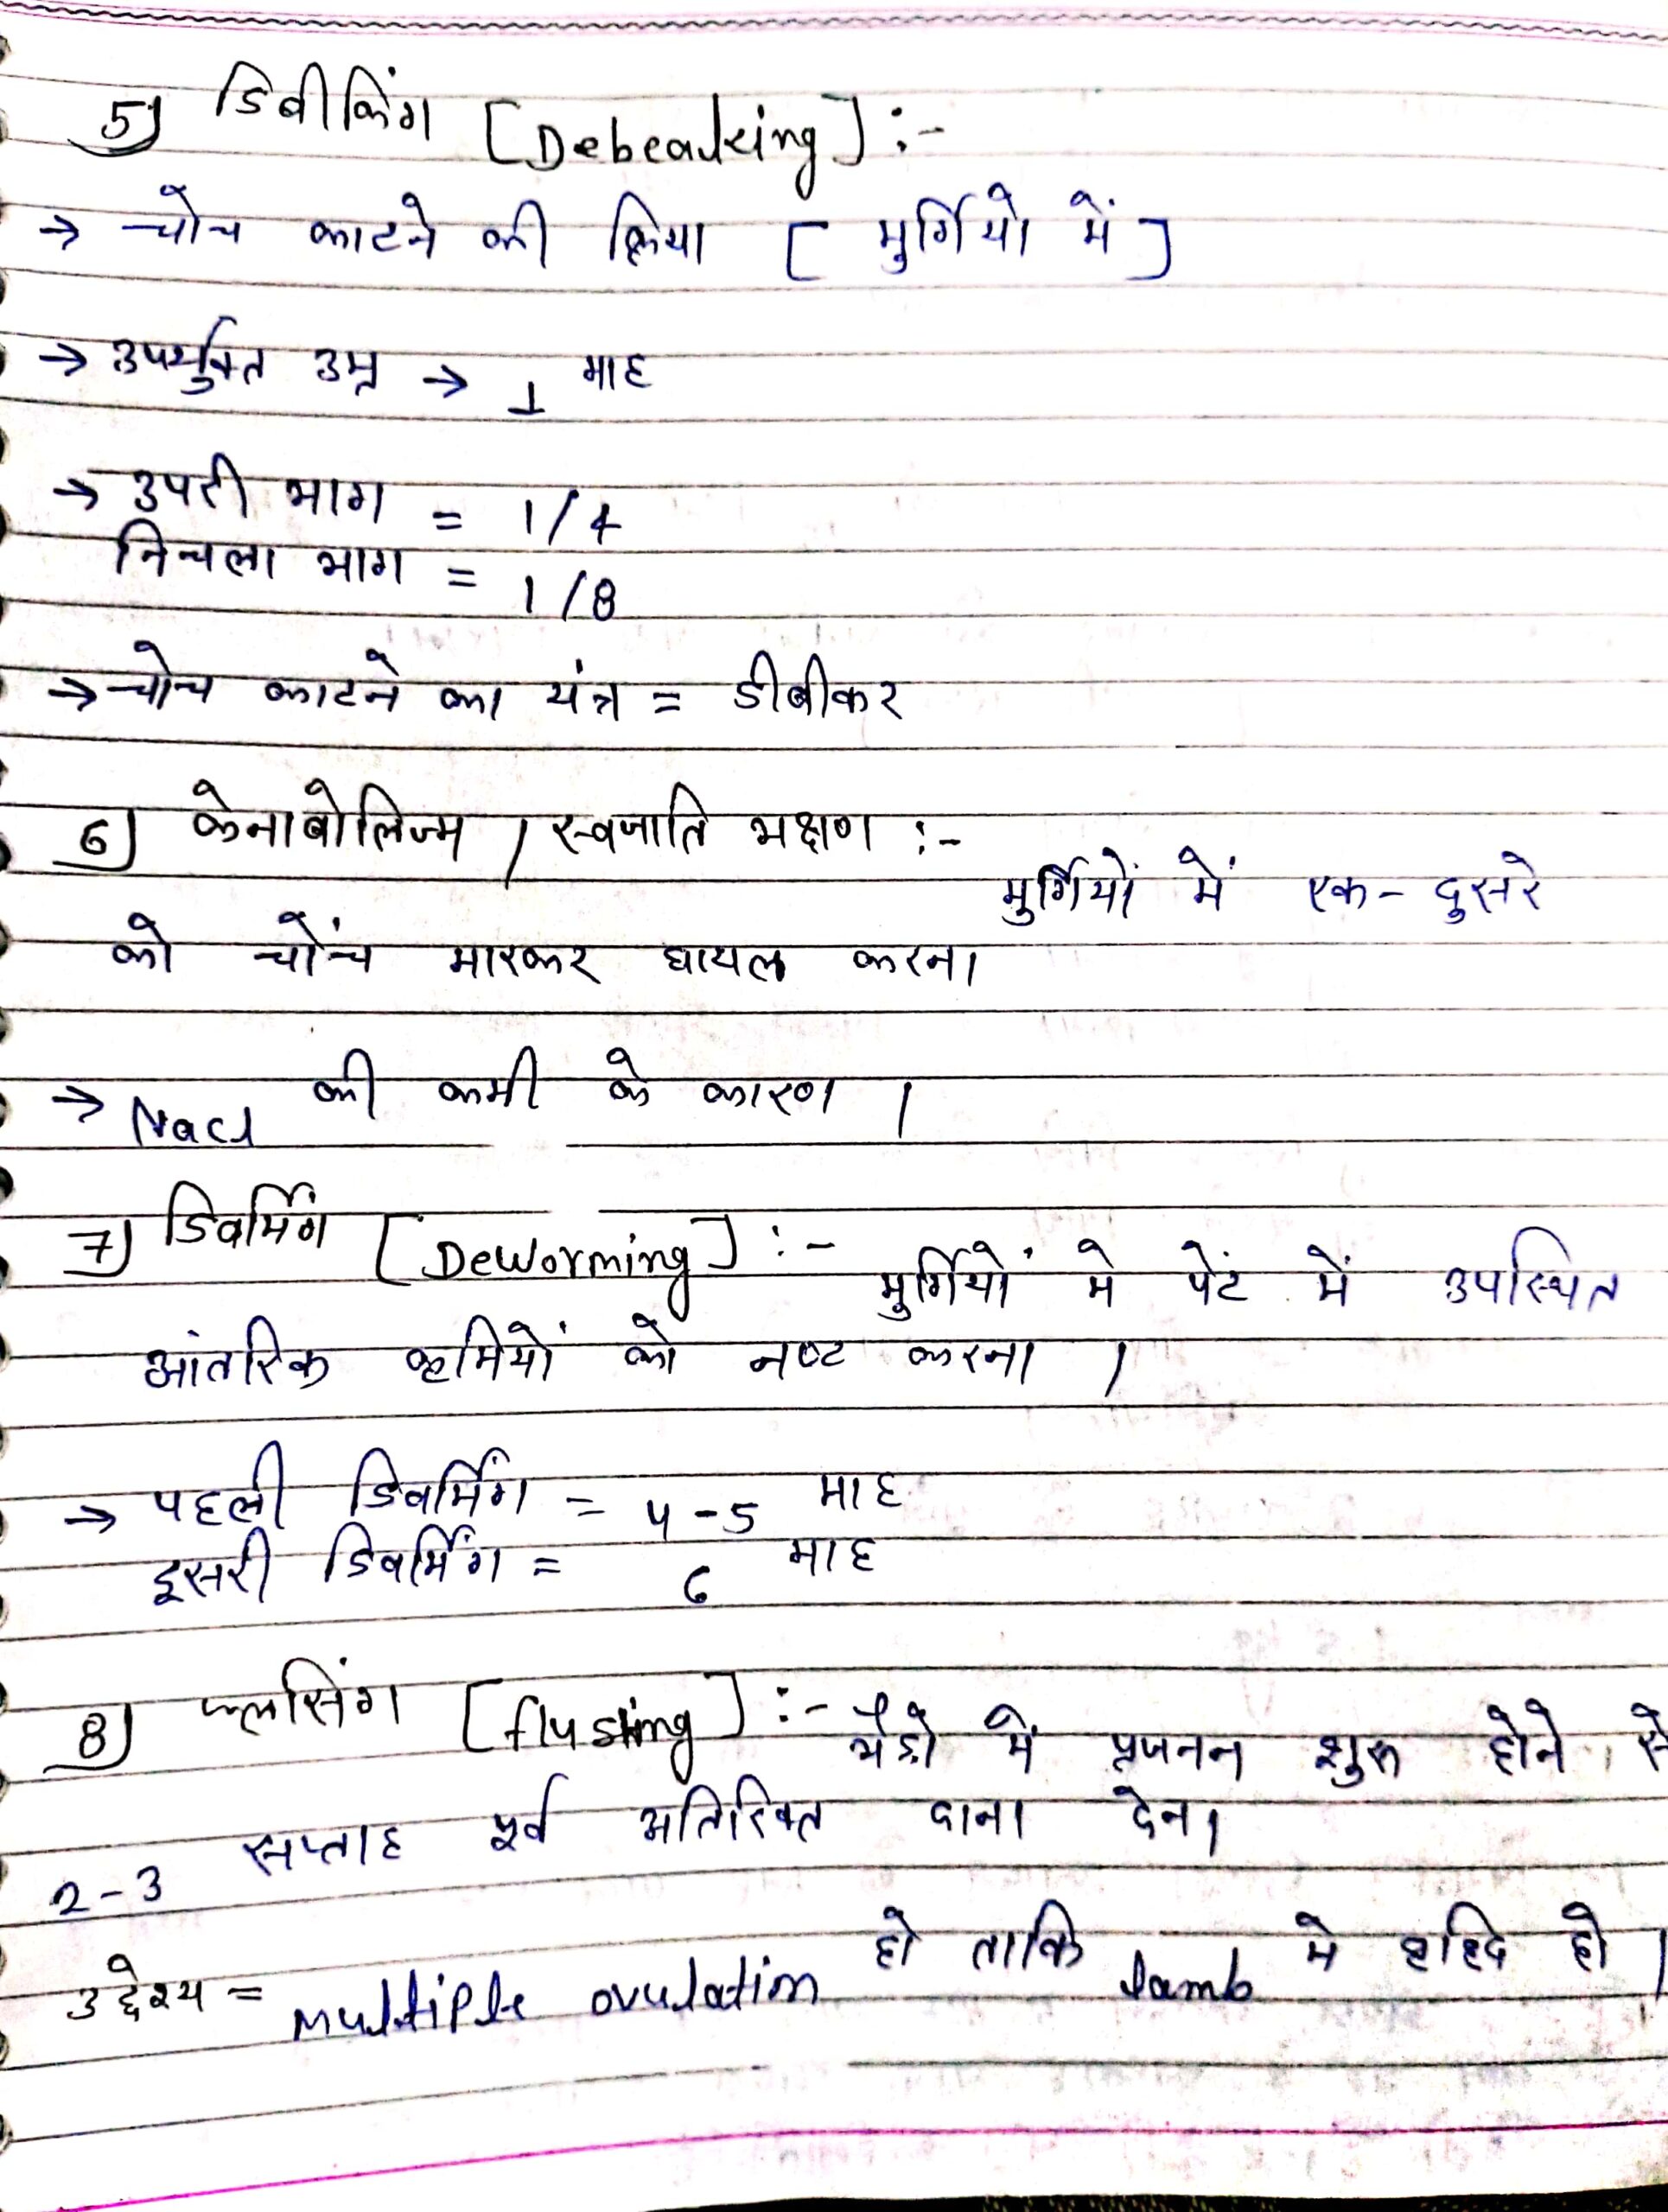 5) डिबीकिंग [Debeaking] :-
→ चोच काटने की क्रिया [ मुर्गियो में ]
→ उपर्युक्त उम्र → 1 माह
→ उपरी भाग = 1/4
निचला भाग = 1/8
→ चोच काटने का यंत्र = डीबीकर
6) केनाबोलिज्म / स्वजाति भक्षण :-
मुर्गियों में एक - दुसरे
को चोंच मारकर घायल करना
→ Nacl की कमी के कारण ।
7) डिवर्मिंग [Deworming] :-
मुर्गियों मे पेट में उपस्थित
आंतरिक कृमियों को नष्ट करना ।
→ पहली डिवर्मिंग = 4-5 माह
दुसरी डिवर्मिंग = 6 माह
8) फ्लसिंग [flushing] :- भेड़ो में प्रजनन शुरू होने से
2-3 सप्ताह पूर्व अतिरिक्त दाना देना
उद्देश्य = Multiple ovulation हो ताकि lamb मे वृद्दि हो ।